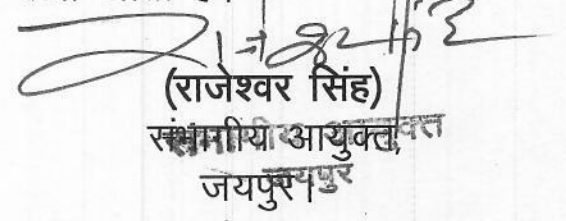 (राजेश्वर सिंह)
संभागीय आयुक्त,
जयपुर।